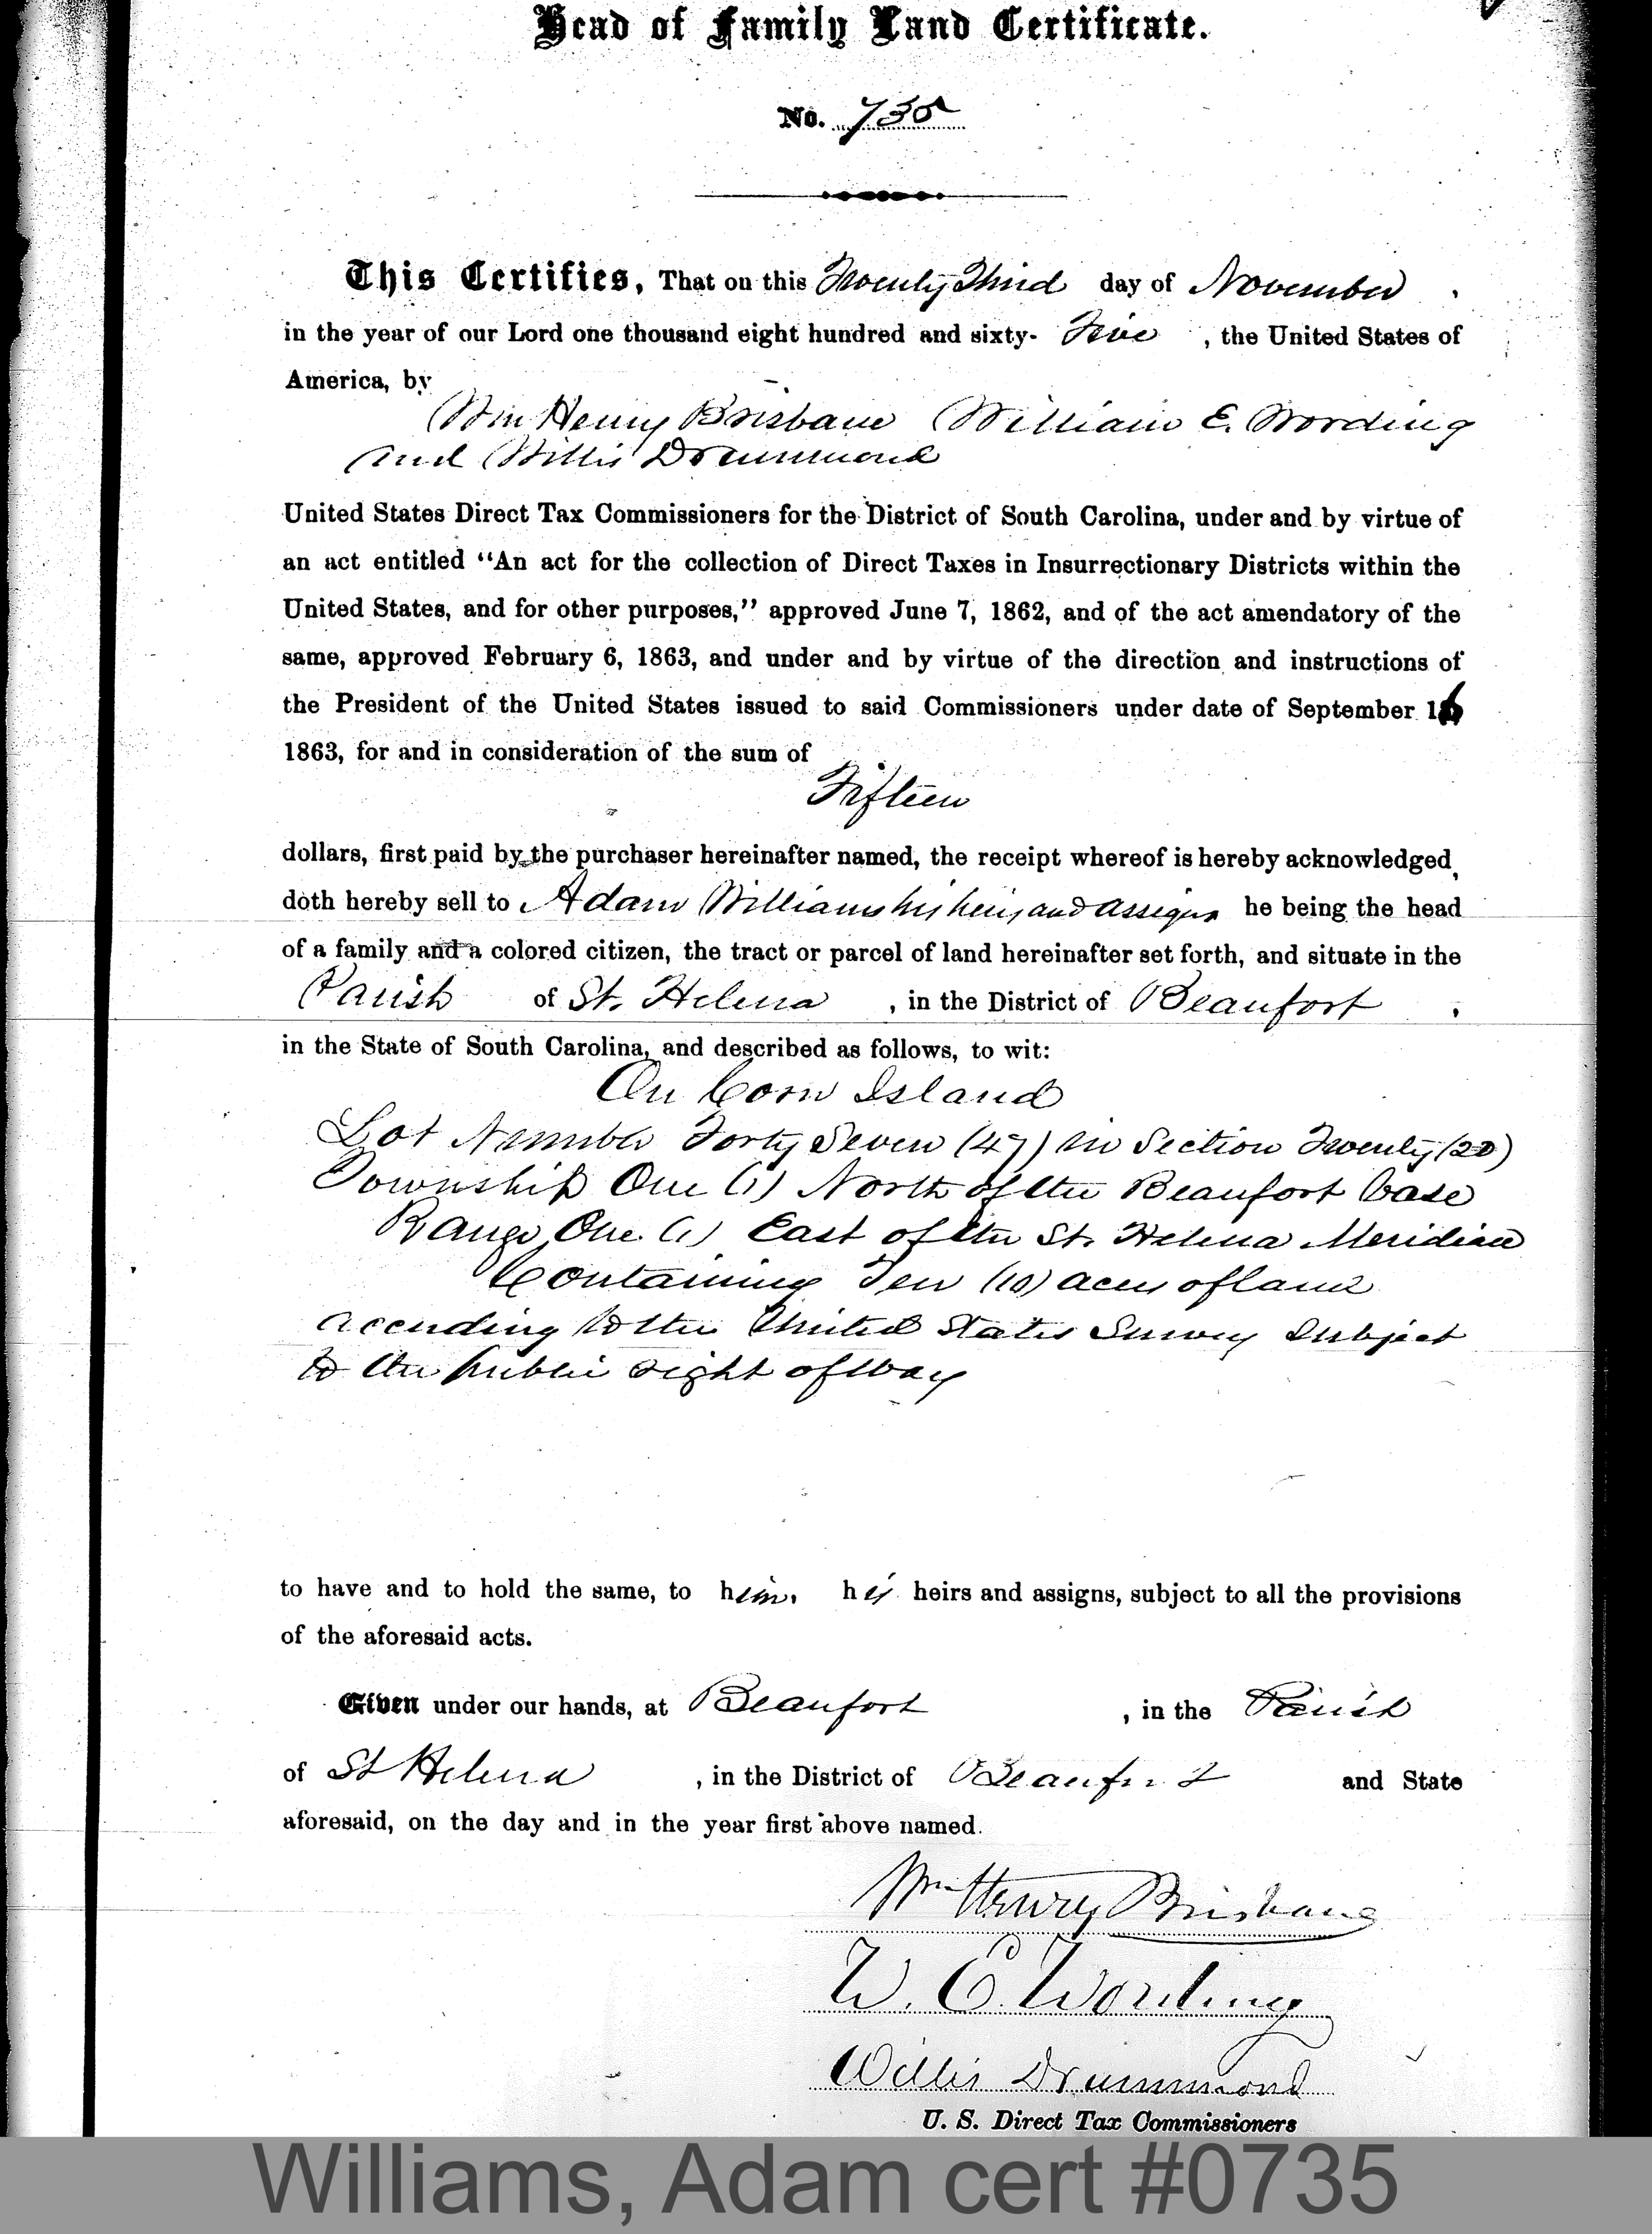 Head of Family Land Certificate.
No. 735
This Certifies, That on this Twenty Third day of November
in the year of our Lord one thousand eight hundred and sixty- Five , the United States of
America, by
Wm Henry Brisbane William E. Wording
and Willis Drummond
United States Direct Tax Commissioners for the District of South Carolina, under and by virtue of
an act entitled “An act for the collection of Direct Taxes in Insurrectionary Districts within the
United States, and for other purposes,” approved June 7, 1862, and of the act amendatory of the
same, approved February 6, 1863, and under and by virtue of the direction and instructions of
the President of the United States issued to said Commissioners under date of September 16
1863, for and in consideration of the sum of
Fifteen
dollars, first paid by the purchaser hereinafter named, the receipt whereof is hereby acknowledged,
doth hereby sell to Adam Williams his heirs and assigns he being the head
of a family and a colored citizen, the tract or parcel of land hereinafter set forth, and situate in the
Parish of St. Helena , in the District of Beaufort ,
in the State of South Carolina, and described as follows, to wit:
On Coosaw Island
Lot Number Forty Seven (47) in Section Twenty (20)
Township One (1) North of the Beaufort base
Range One (1) East of the St. Helena Meridian
Containing Ten (10) acres of land
according to the United States Survey Subject
to the public right of way
to have and to hold the same, to him, his heirs and assigns, subject to all the provisions
of the aforesaid acts.
Given under our hands, at Beaufort , in the Parish
of St Helena , in the District of Beaufort and State
aforesaid, on the day and in the year first above named.
Wm Henry Brisbane
W. E. Wording
Willis Drummond
U. S. Direct Tax Commissioners
Williams, Adam cert #0735